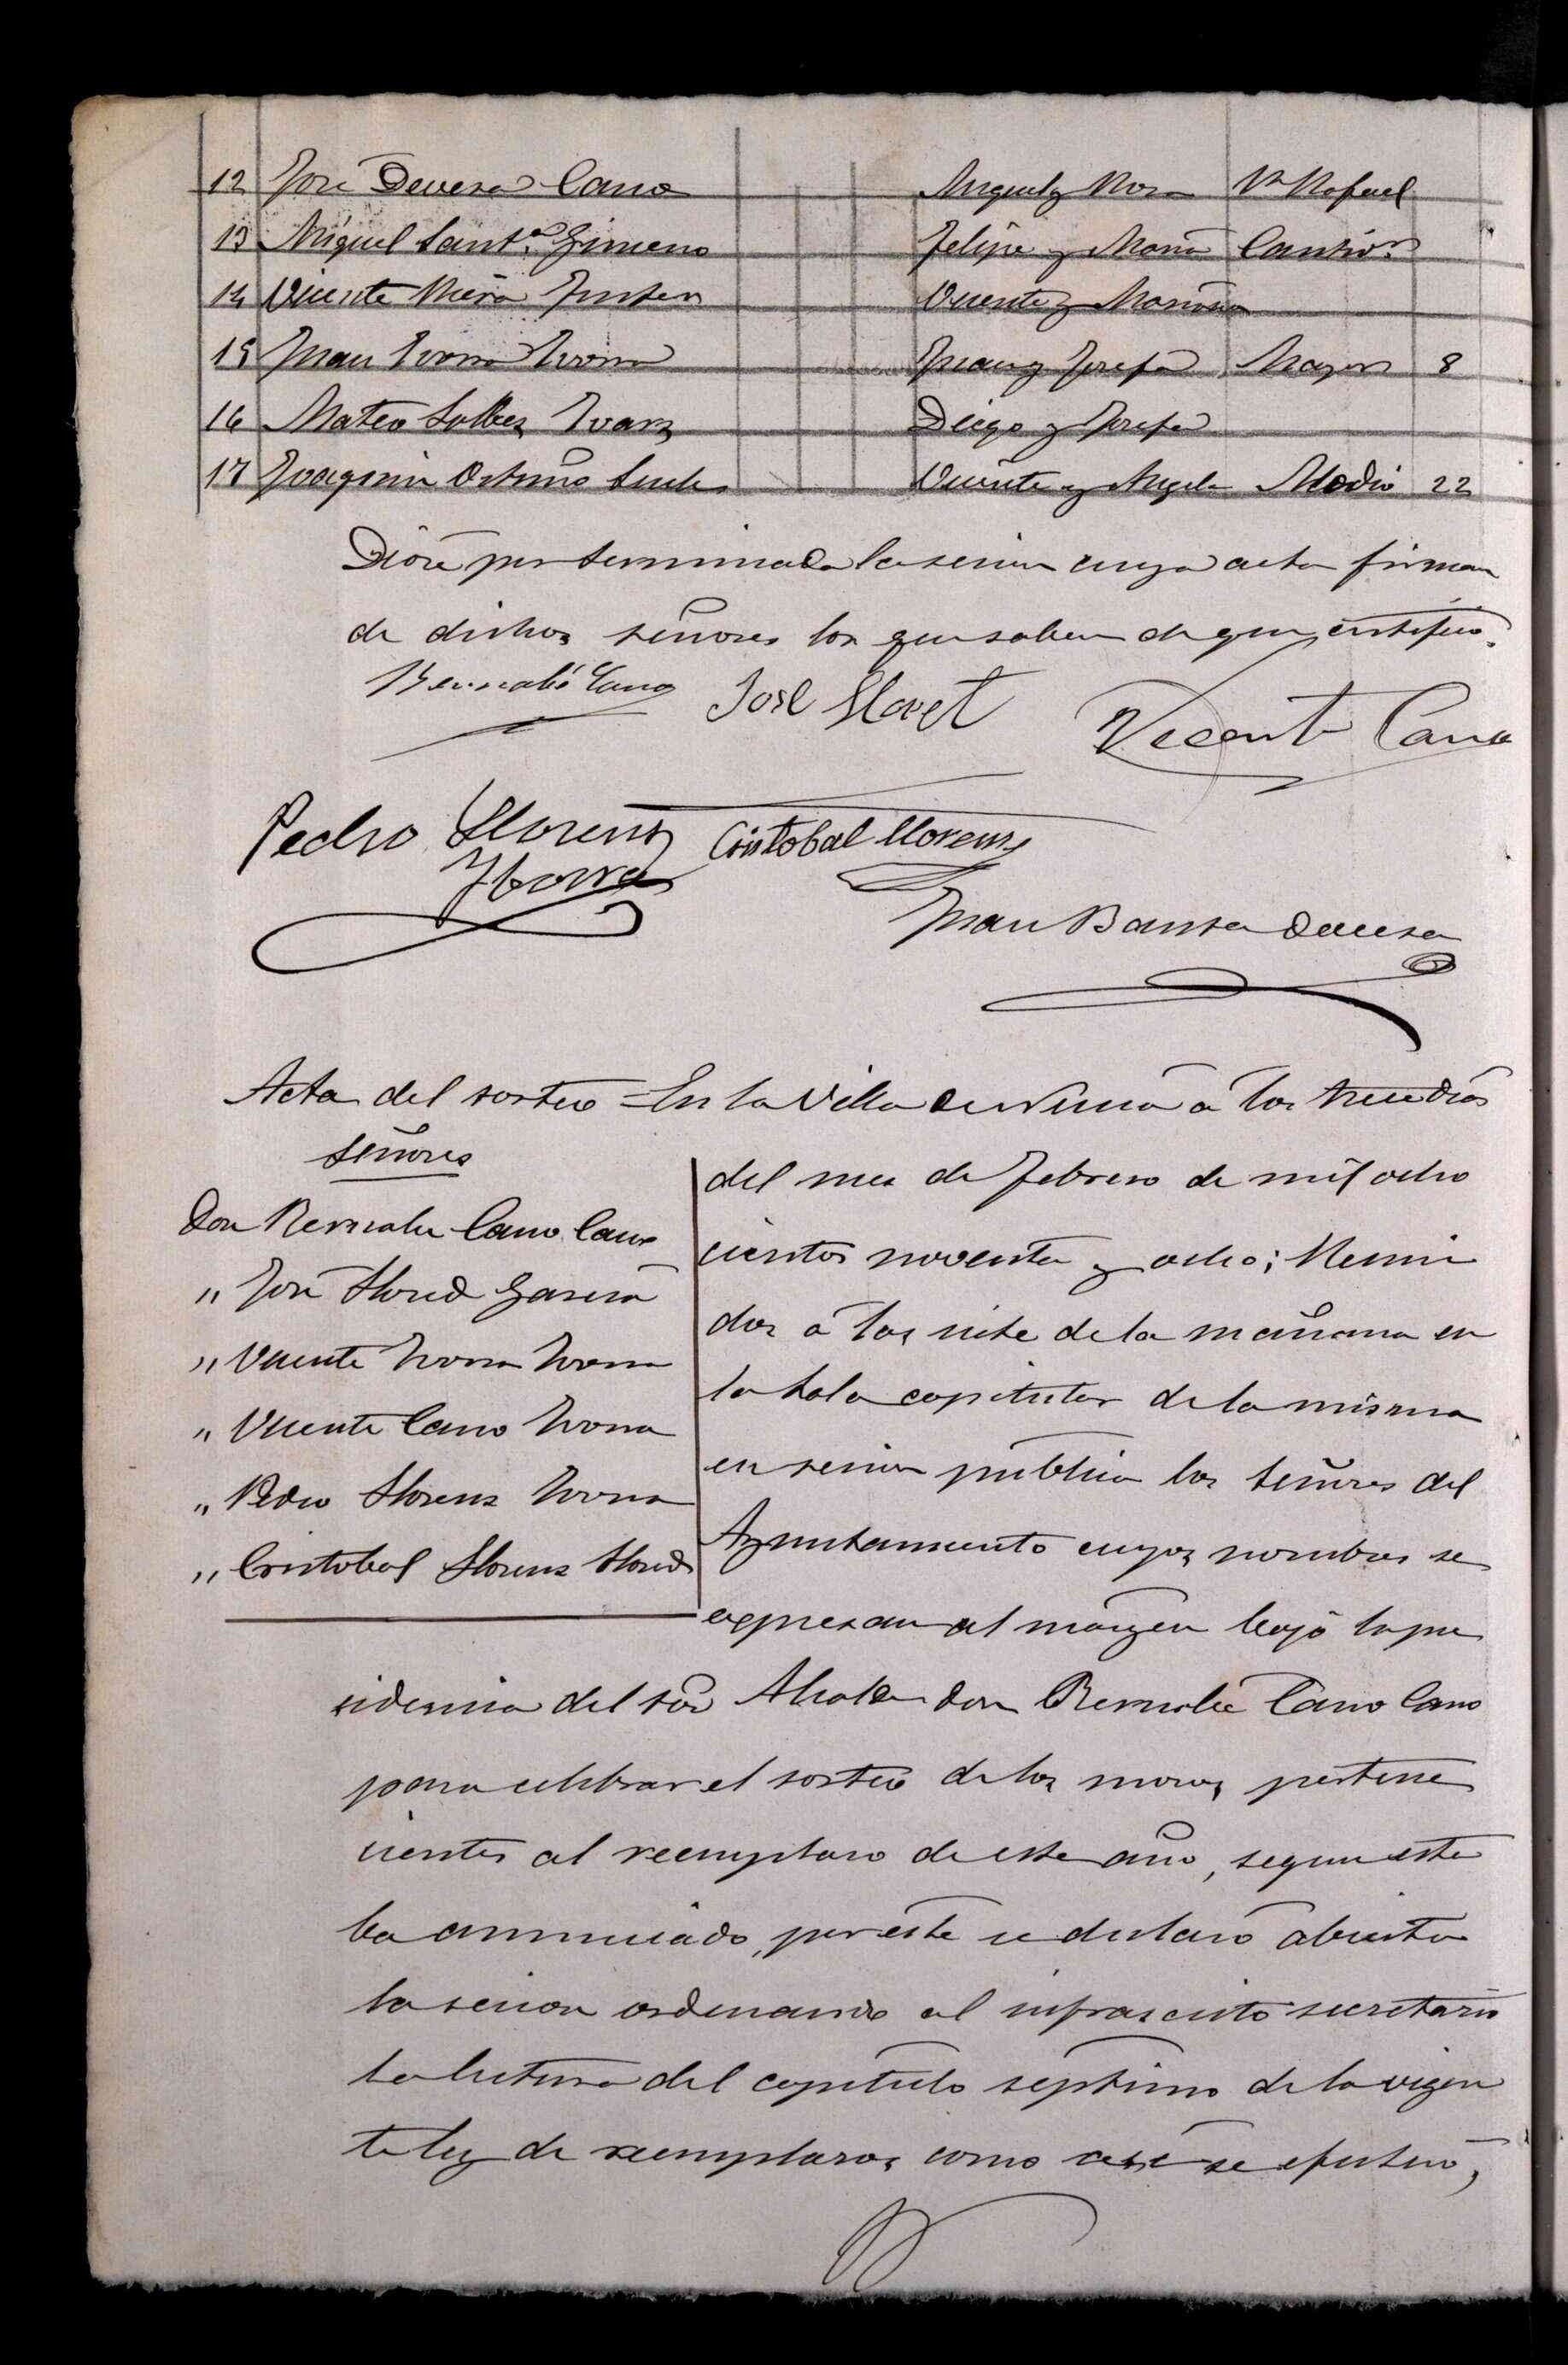 12 José Devesa Cano Miguel y Rosa Sn Rafael
13 Miguel Sant.ª Gimeno Felipe y María
14 Vicente Mira Vicente y Mariana
15 Juan Ivorra Ivorra Juan y Josefa Mayor 8
16 Mateo Solbes Ivars Diego y Josefa
17 Joaquin Ortuño Vicente y Angela Medio 22
Dióse por terminada la sesion cuya acta firman
de dichos señores los que saben de que certifico.
Bernabé Cano José Lloret Vicente Cano
Pedro Llorens Cristobal Llorens
Yborra
Juan Bauta Devesa
Acta del sorteo = En la Villa de á los trece dias
Señores
del mes de Febrero de mil ocho
Don Bernabe Cano Cano
cientos noventa y ocho; Reuni
" José Lloret Garcia
dos á las siete de la mañana en
" Vicente Ivorra Ivorra
la sala capitular de la misma
" Vicente Cano Ivorra
en sesion publica los Señores del
" Pedro Llorens Ivorra
Ayuntamiento cuyos nombres se
" Cristobal Llorens Lloret
expresan al margen bajo la pre
sidencia del Sor Alcalde don Bernabé Cano Cano
para celebrar el sorteo de los mozos pertene
cientes al reemplazo de este año, segun esta
ba anunciado, por este se declaró abierta
la sesion ordenando al infrascrito secretario
la lectura del capitulo septimo de la vigen
te ley de reemplazos, como asi se efectuó,